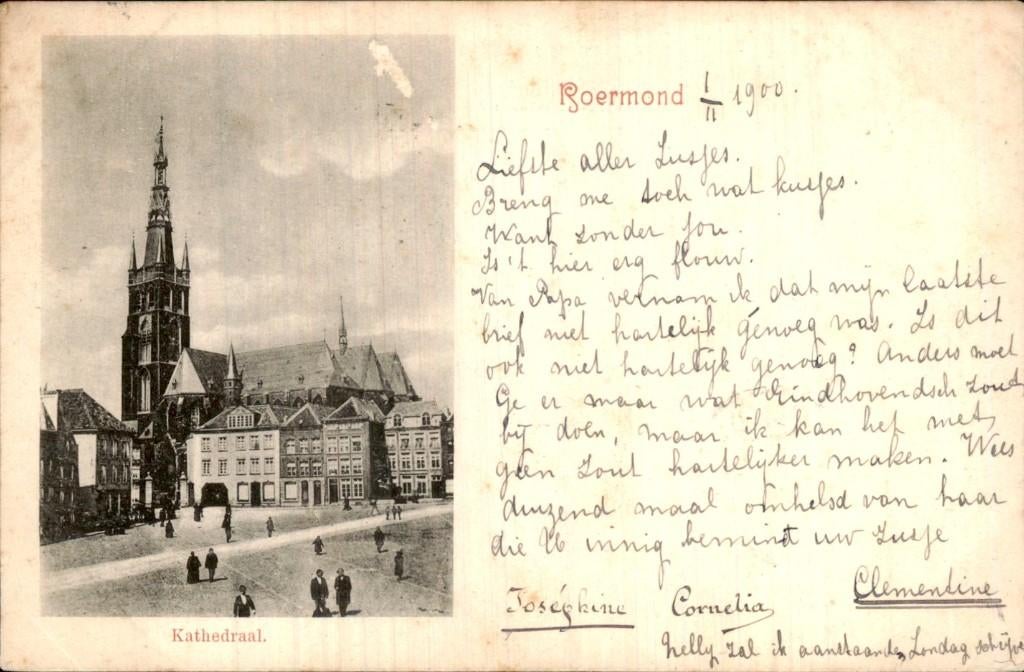 Roermond 1/II 1900.
Liefste aller Zusjes.
Breng me toch wat kusjes.
Want zonder jou.
Is 't hier erg flouw.
Van Papa vernam ik dat mijn laatste
brief niet hartelijk genoeg was. Is dit
ook niet hartelijk genoeg? Anders moet
Ge er maar wat Eindhovendsch zout
bij doen, maar ik kan het met
geen zout hartelijker maken. Wees
duizend maal omhelsd van haar
die U innig bemint uw Zusje
Joséphine Cornelia Clementine
Nelly zal ik aanstaande Zondag schrijven
Kathedraal.